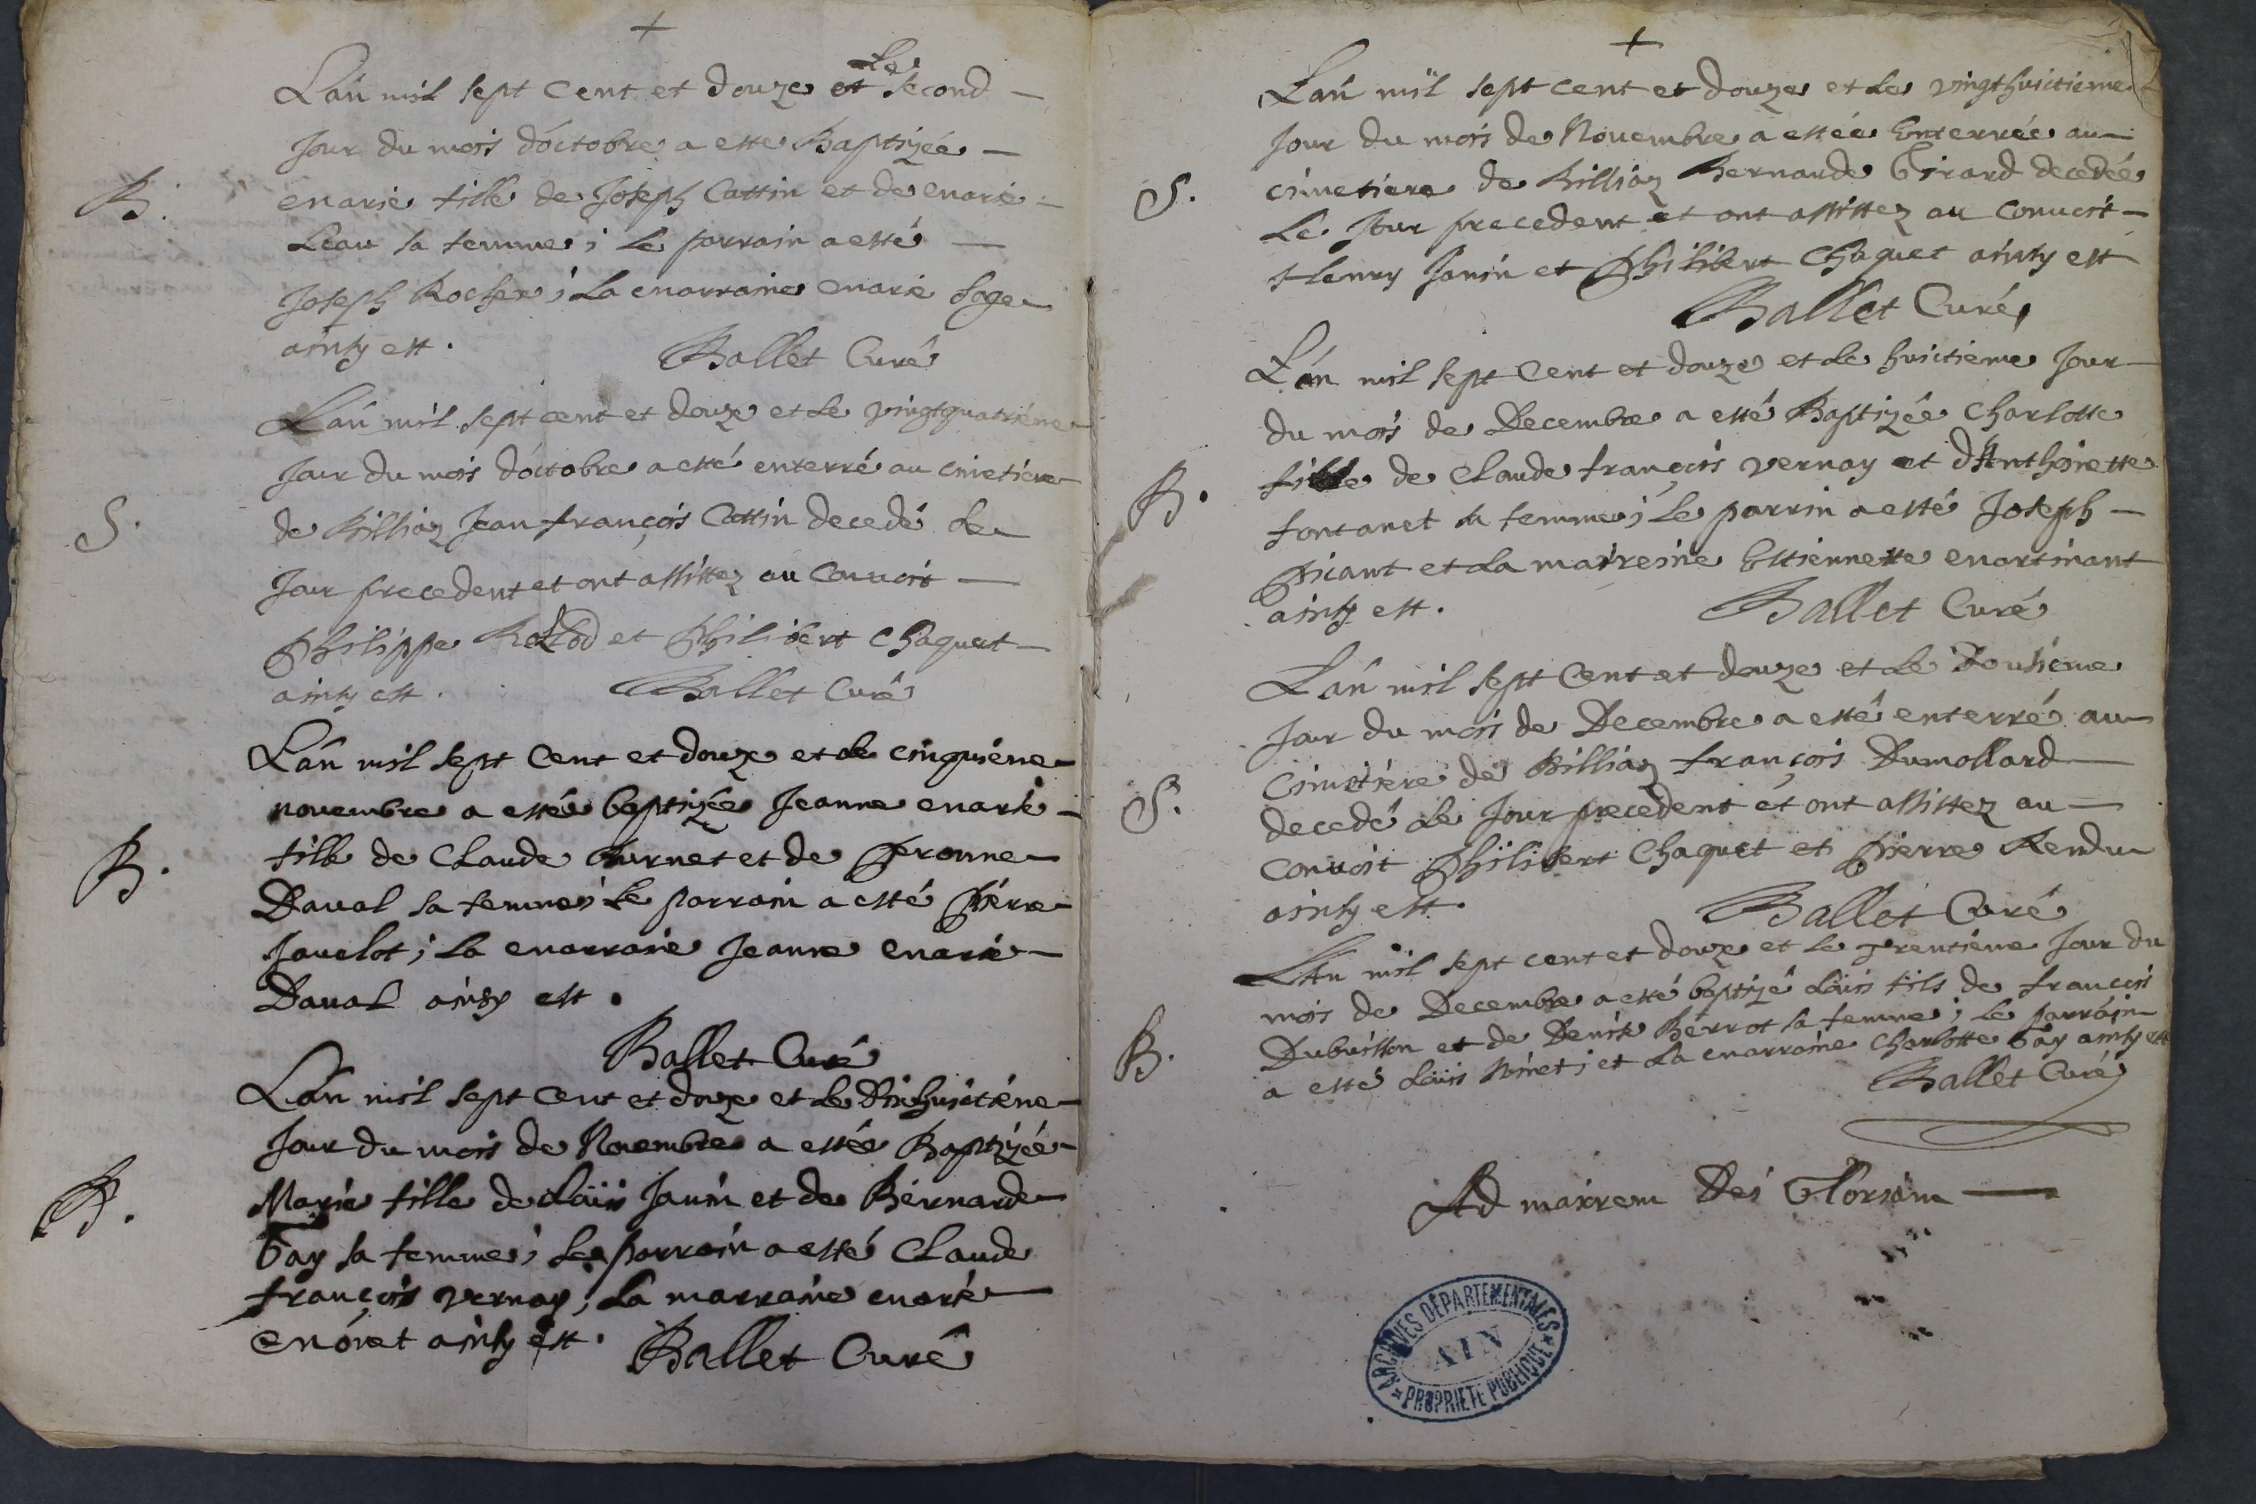 +
Lan mil sept cent et douze et le second
Jour du mois doctobre a este Baptizée
B.
marie fille de Joseph Cattin et de marie
Leau sa femme ; Le parrain a esté
Joseph Rocher ; La marraine marie
ainsy est .
Ballet Curé
Lan mil sept cent et douze et le vingtquatriéme
Jour du mois doctobre a esté enterré au cimetiere
S.
de Billiaz Jean françois Cattin decedé le
Jour precedent et ont assistez au convoit
Philippe et Philibert Chaquet
ainsy est .
Ballet Curé
Lan mil sept Cent et douze et le cinquiéme
novembre a estée baptizée Jeanne marie
B.
fille de Claude Burnet et de Peronne
Daval sa femme ; Le parrain a esté Pierre
Javelot ; La marraine Jeanne marie
Daval ainsy est .
Ballet Curé
Lan mil sept Cent et douze et le Dixhuictiéme
Jour du mois de Novembre a estée Baptizée
B.
Marie fille de Loüis Janin et de Bernarde
Gay sa femme ; Le parrain a esté Claude
françois vernay ; La marraine marie
moret ainsy est .
Ballet Curé
+
Lan mil sept cent et douze et le vingthuictieme
Jour du mois de Novembre a estée Enterrée au
S.
cimetiere de Billiaz Bernarde Girard decedée
Le Jour precedent et ont assistez au convoit
Henry Janin et Philibert Chaquet ainsy est
Ballet Curé
Lan mil sept Cent et douze et le huictieme Jour
du mois de Decembre a esté Baptizée Charlotte
B.
fille de Claude françois vernay et d'Anthoinette
fontanet sa femme ; Le parrin a esté Joseph
Picant et La maireine Estiennette martinant
ainsy est .
Ballet Curé
Lan mil sept Cent et douze et le Dousieme
Jour du mois de Decembre a esté enterré au
S.
Cimetiére de Billiaz françois Dumollard
decedé le Jour precedent et ont assistez au
convoit Philibert Chaquet et Pierre Rendu
ainsy est .
Ballet Curé
LAn mil sept cent et douze et le trentiéme Jour du
mois de Decembre a esté baptizé Loüis fils de françois
B.
Dubuisson et de Denise Berrot sa femme ; Le parrain
a esté Loüis Ninet ; et La marraine Charlotte Gay ainsy est
Ballet Curé
Ad maiorem Dei Gloriam
ARCHIVES DÉPARTEMENTALES
AIN
PROPRIÉTÉ PUBLIQUE